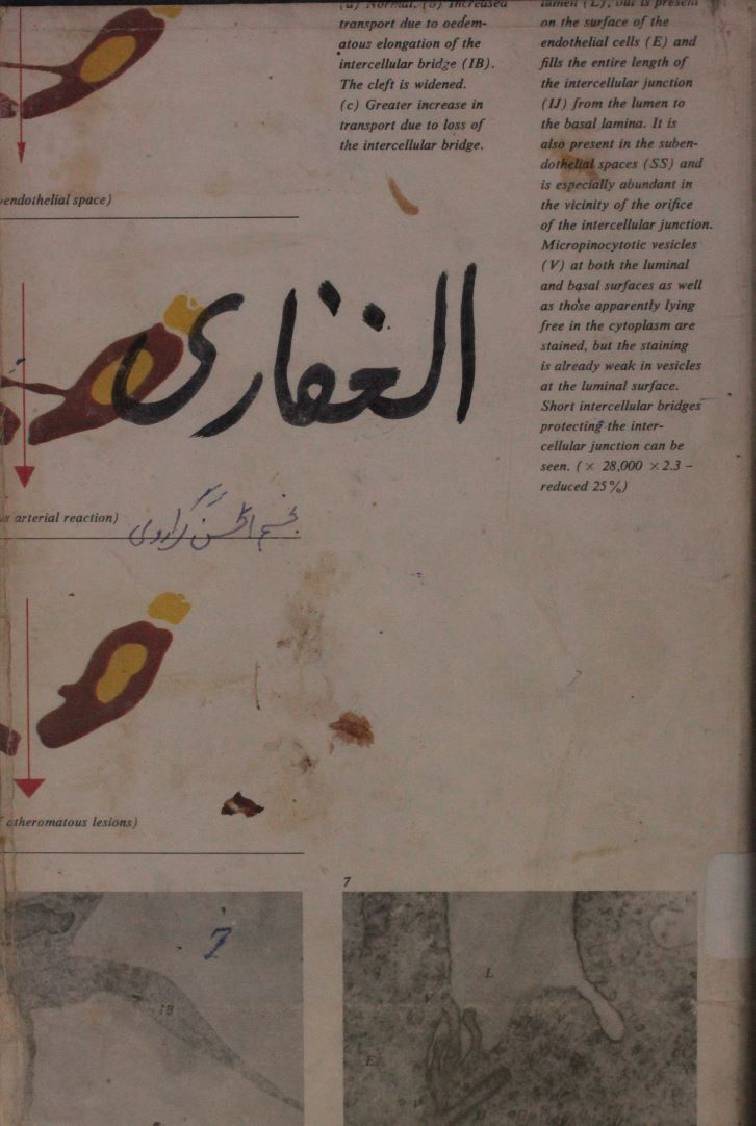 (a) Normal. (b) Increased
transport due to oedem-
atous elongation of the
intercellular bridge (IB).
The cleft is widened.
(c) Greater increase in
transport due to loss of
the intercellular bridge.
lumen (L), but is present
on the surface of the
endothelial cells (E) and
fills the entire length of
the intercellular junction
(IJ) from the lumen to
the basal lamina. It is
also present in the suben-
dothelial spaces (SS) and
is especially abundant in
the vicinity of the orifice
of the intercellular junction.
Micropinocytotic vesicles
(V) at both the luminal
and basal surfaces as well
as those apparently lying
free in the cytoplasm are
stained, but the staining
is already weak in vesicles
at the luminal surface.
Short intercellular bridges
protecting the inter-
cellular junction can be
seen. (× 28,000 ×2.3 –
reduced 25%)
endothelial space)
الغفاری
arterial reaction)
atheromatous lesions)
7
7
IB
L
V
V
E